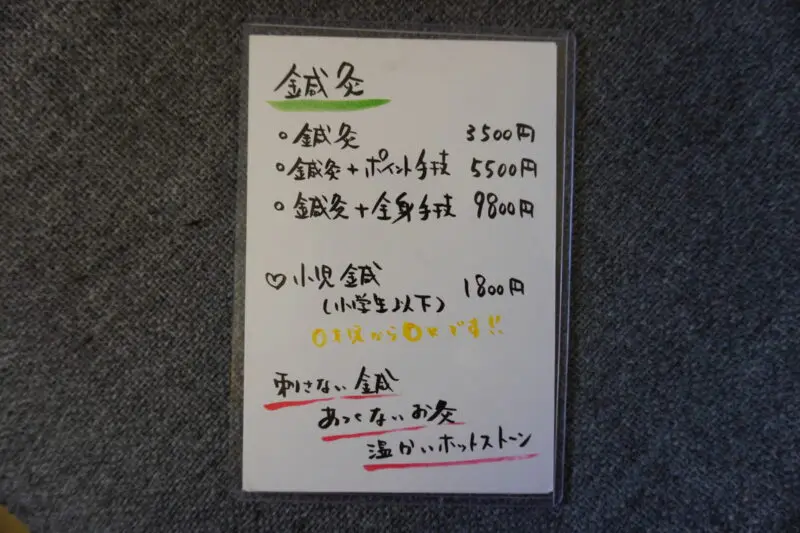 鍼灸
○鍼灸 3500円
○鍼灸+ポイント手技 5500円
○鍼灸+全身手技 9800円
♡小児鍼 1800円
(小学生以下)
0才児から○K です!!
刺さない鍼
あつくないお灸
温かいホットストーン